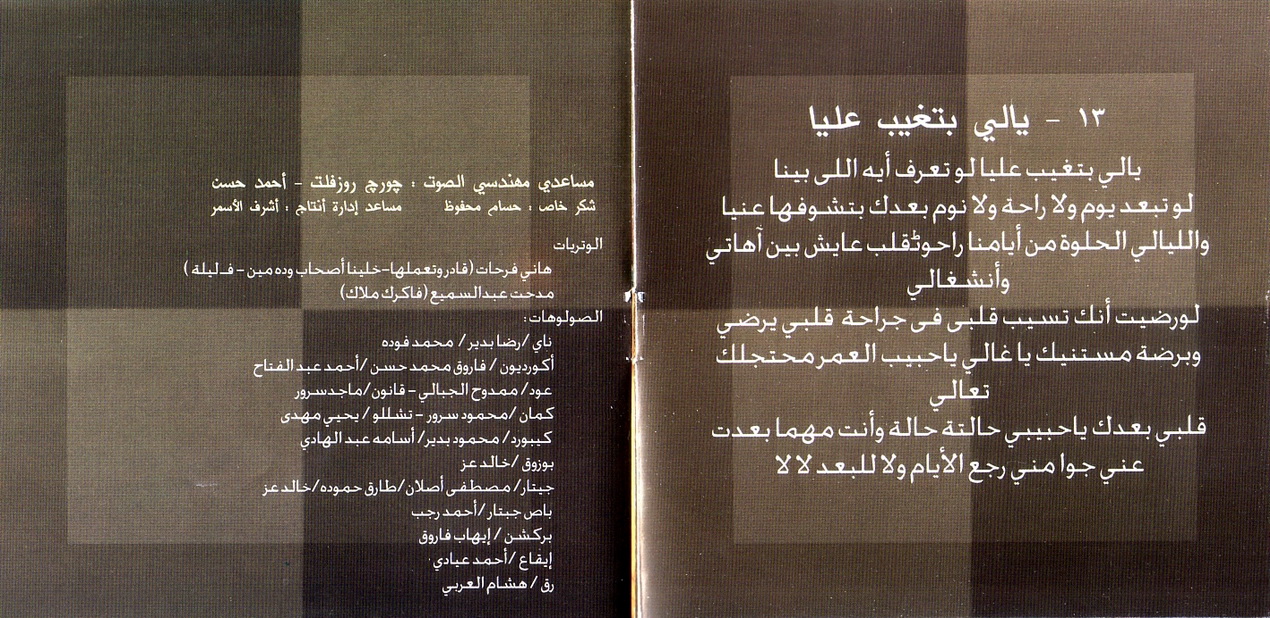 ١٣ - يالي بتغيب عليا
يالي بتغيب عليا لو تعرف أيه اللى بينا
لو تبعد يوم ولا راحة ولا نوم بعدك بتشوفها عنيا
والليالي الحلوة من أيامنا راحو قلب عايش بين آهاتي
وأنشغالي
لو رضيت أنك تسيب قلبى فى جراحة قلبي يرضي
وبرضة مستنيك يا غالي ياحبيب العمر محتجلك
تعالي
قلبي بعدك ياحبيبي حالتة حالة وأنت مهما بعدت
عني جوا مني رجع الأيام ولا للبعد لا لا
مساعدي مهندسي الصوت : چورچ روزفلت - أحمد حسن
شكر خاص : حسام محفوظ مساعد إدارة أنتاج : أشرف الأسمر
الوتريات
هاني فرحات (قادر وتعملها-خلينا أصحاب وده مين - فـ ليلة )
مدحت عبدالسميع (فاكرك ملاك)
الصولوهات:
ناي /رضا بدير/ محمد فوده
أكورديون / فاروق محمد حسن /أحمد عبد الفتاح
عود/ ممدوح الجبالي - قانون/ماجدسرور
كمان /محمود سرور - تشللو / يحيي مهدى
كيبورد/ محمود بدير/ أسامه عبد الهادي
بوزوق /خالد عز
جيتار/ مصطفى أصلان/طارق حموده/خالد عز
باص جيتار/أحمد رجب
بركشن / إيهاب فاروق
إيقاع /أحمد عيادي
رق/ هشام العربي